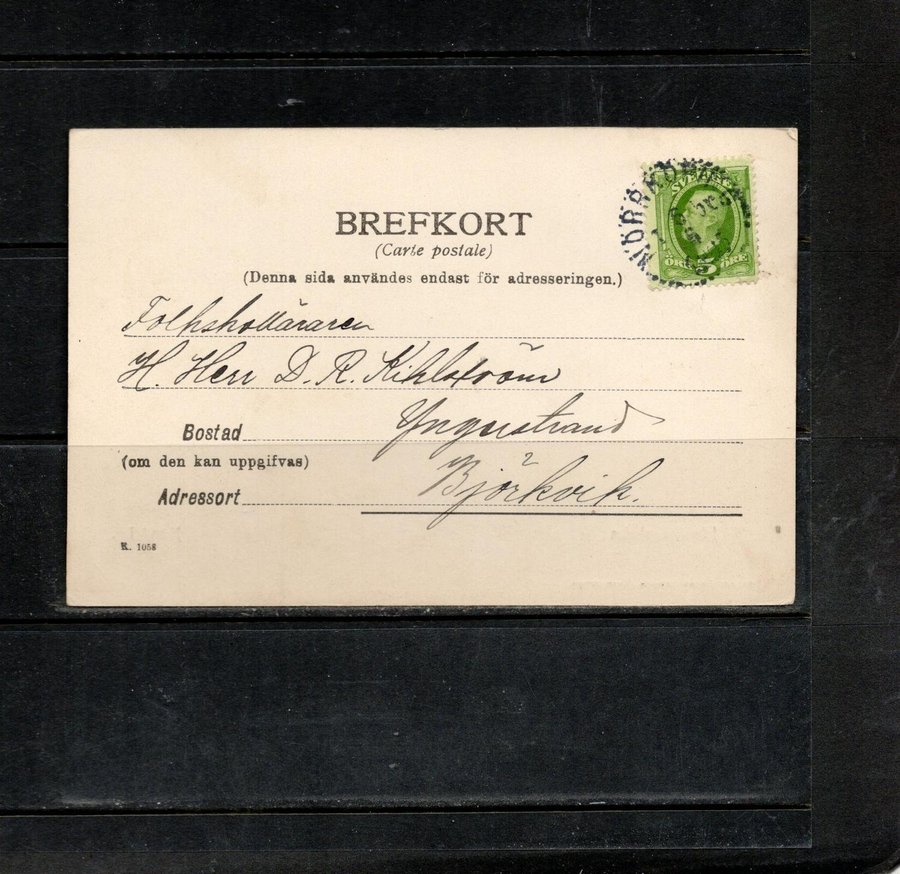 BREFKORT
(Carte postale)
(Denna sida användes endast för adresseringen.)
SVERIGE
5
ÖRE ÖRE
NORRKÖPING
Folkskolläraren
H. Herr D. R. Kihlström
Bostad Yngnstrand
(om den kan uppgifvas)
Adressort Björkvik.
K. 1058